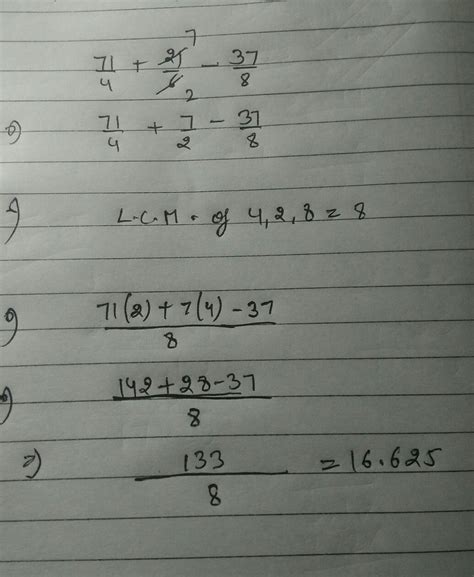 71/4 + 21/6 - 37/8
7
2
71/4 + 7/2 - 37/8
L.C.M. of 4, 2, 8 = 8
71(2) + 7(4) - 37 / 8
142 + 28 - 37 / 8
133 / 8 = 16.625